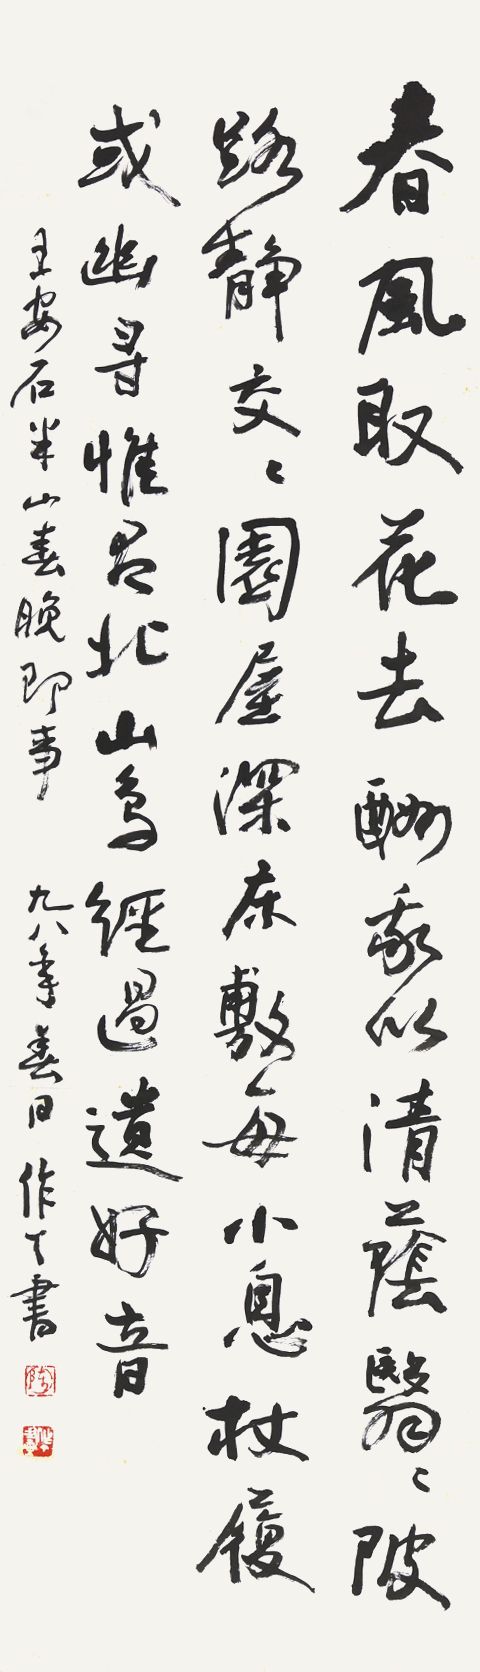 春風取花去酬我以清蔭翳〻陂
路靜交〻園屋深床敷每小息杖履
或幽尋惟有北山鳥經過遺好音
王安石半山春晚即事 九八年春日 作書